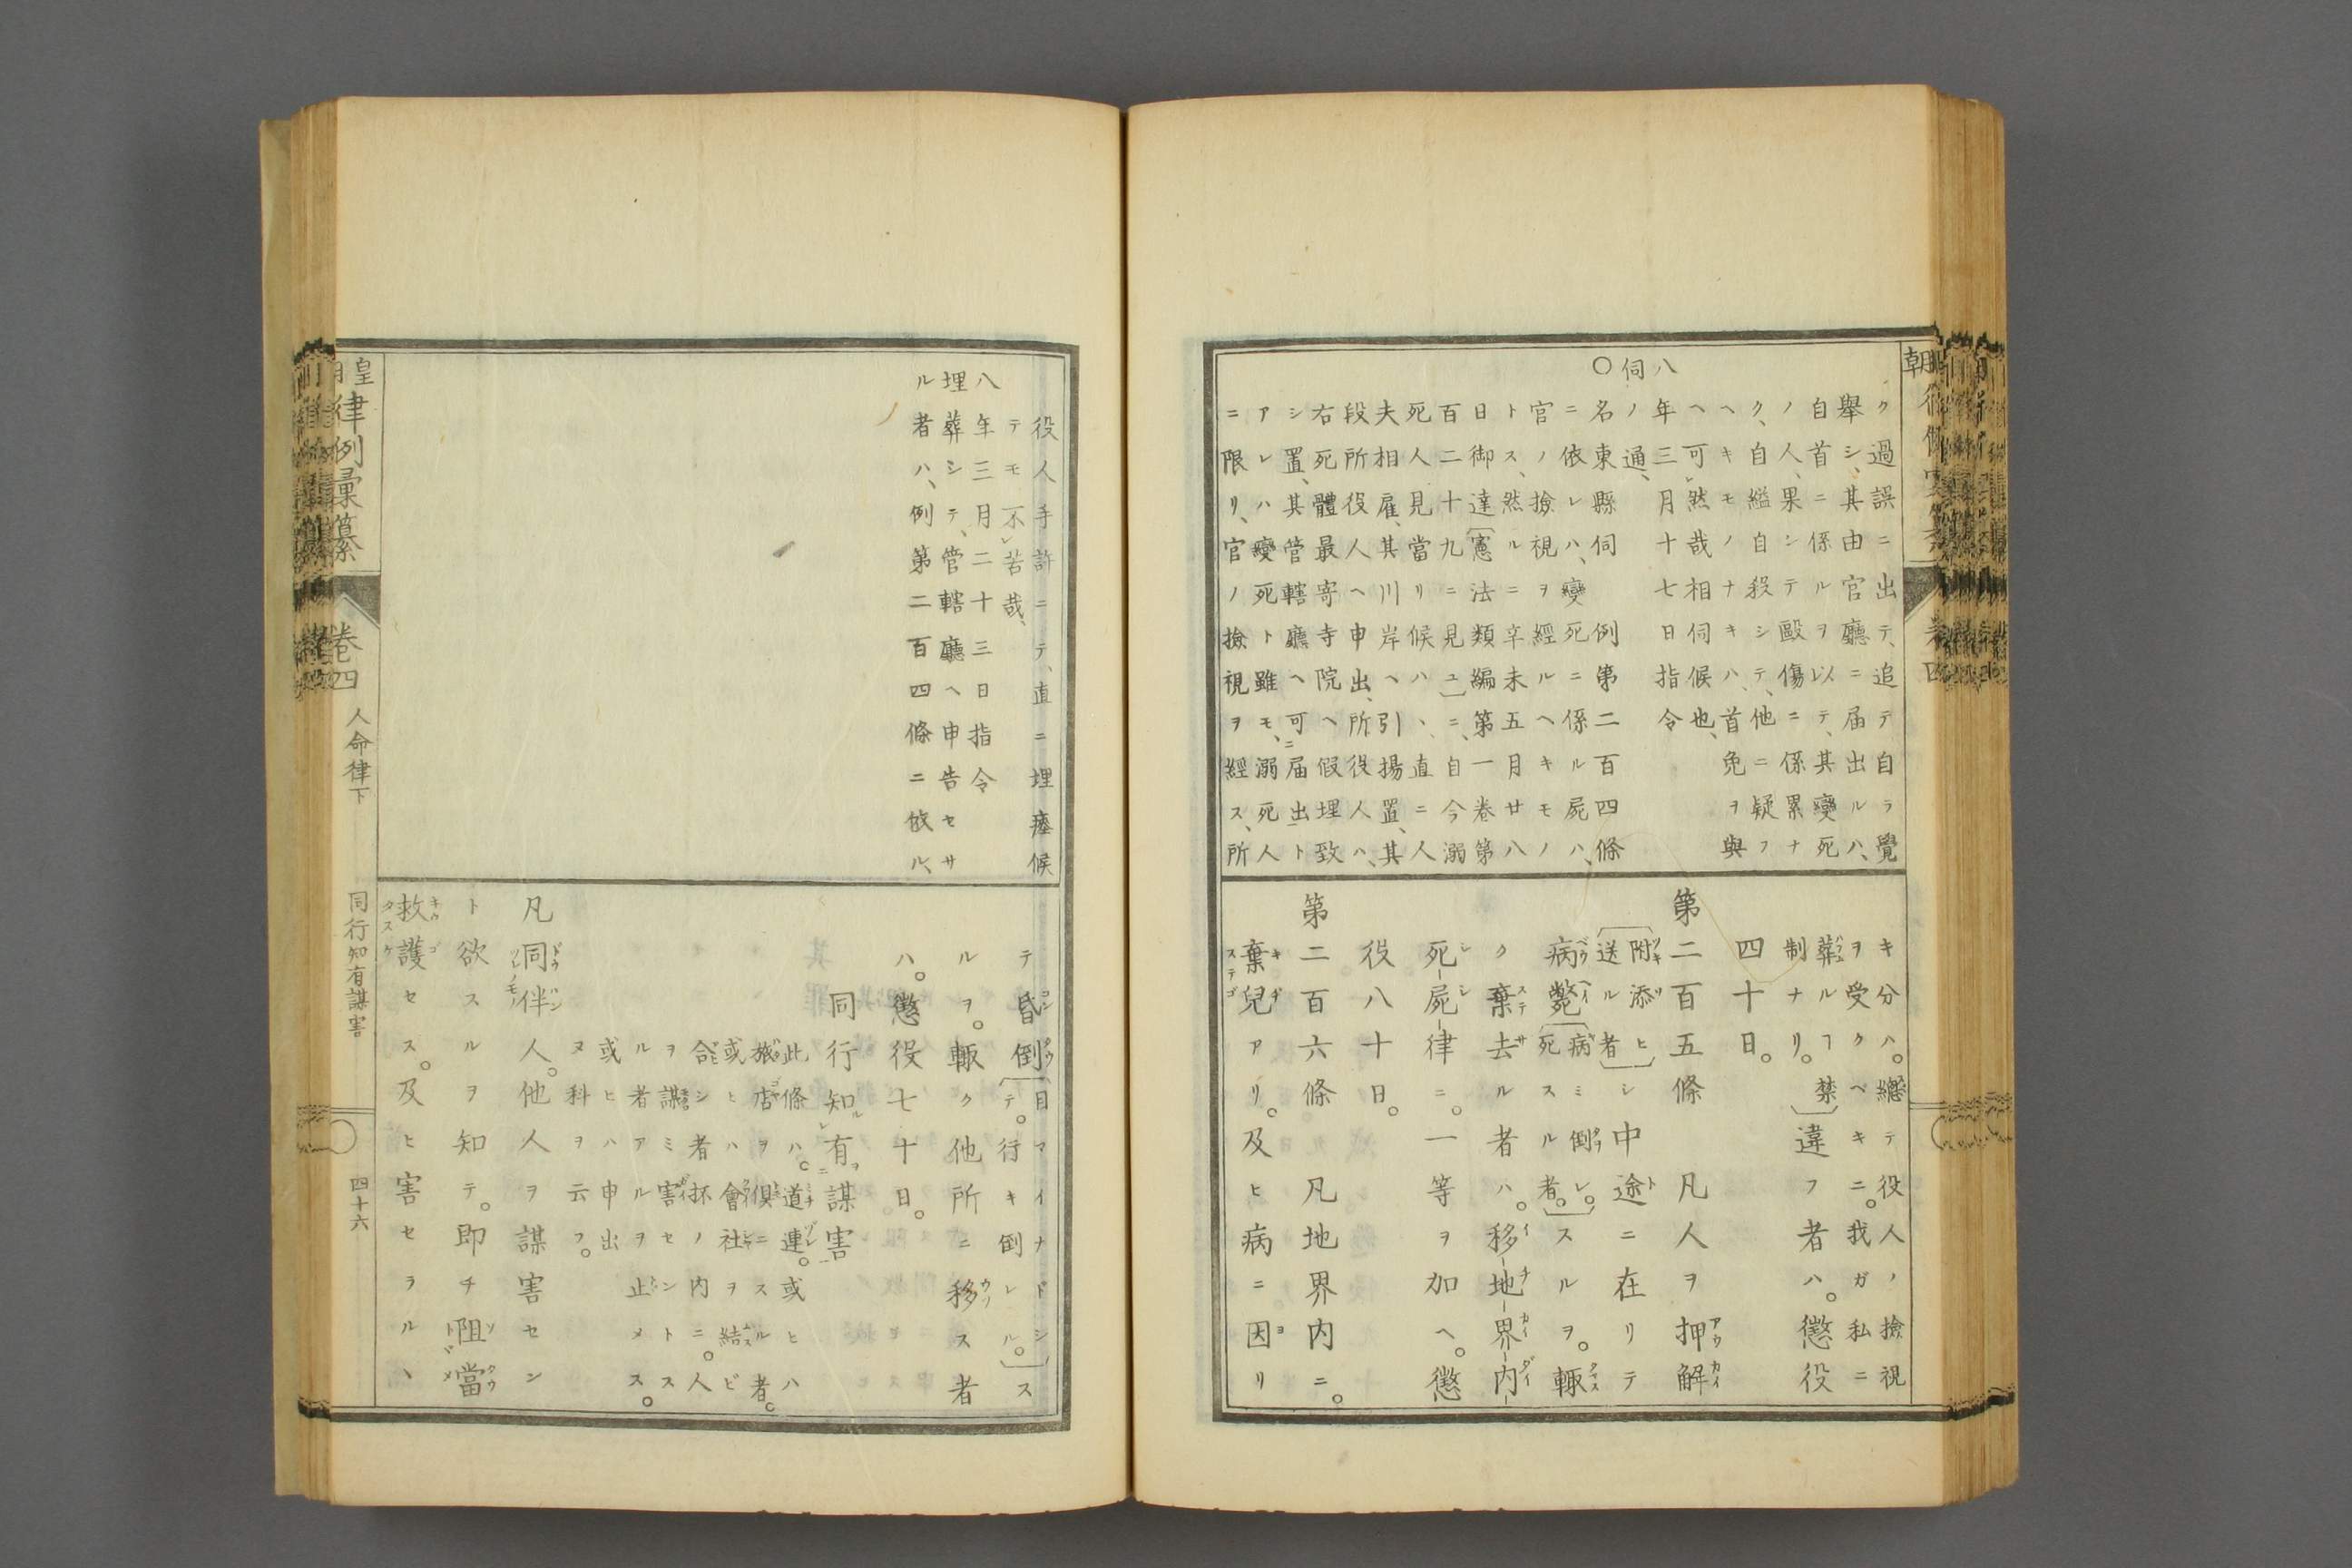 朝
ク過誤ニ出テ、追テ自ラ覺
舉シ、其由官廳ニ届出ルハ、
自首ニ係ルヲ以テ、其變死
ノ人、果シテ毆傷ニ係累ナ
ク、自縊自殺シテ、他ニ疑フ
ヘキモノナキハ、首免ヲ與
ヘ可レ然哉相伺候也、
八年三月十七日指令
伺ノ通、
○名東縣伺 例第二百四條
ニ依レハ、變死ニ係ル屍ハ、
官ノ撿視ヲ經ルヘキモノ
トス、然ルニ辛未五月廿八
日御達〔憲法類編第一卷第
百二十九ニ見ユ〕ニ、自今溺
死人見當リ候ハヽ、直ニ人
夫相雇、其川岸ヘ引揚置、其
段所役人ヘ申出、所役人ハ、
右死體最寄寺院ヘ假埋致
シ置、其管轄廳ヘ可ニ届出一ト
アレハ變死ト雖モ、溺死人
ニ限リ、官ノ撿視ヲ經ス、所
キ分ハ。總テ役人ノ撿視
ヲ受クベキニ。我ガ私ニ
葬ルヿ禁制ナリ。〕違フ者ハ。懲役
四十日。
第二百五條 凡人ヲ押解
〔附添ヒ送ル者〕シ中途ニ在リテ
病斃〔病ミ倒レ。死スル者。〕スルヲ。輙
ク棄去ル者ハ。移地界内
死屍律ニ。一等ヲ加ヘ。懲
役八十日。
第二百六條 凡地界内ニ。
棄兒アリ。及ヒ病ニ因リ
役人手許ニテ、直ニ埋瘞候
テモ不レ苦哉、
八年三月二十三日指令
埋葬シテ、管轄廳ヘ申告セサ
ル者ハ、例第二百四條ニ依ル、
テ昏倒〔目マイナドシテ。行キ倒レル。〕ス
ルヲ。輙ク他所ニ移ス者
ハ。懲役七十日。
同行知レ有ニ謀害一
此條ハ。道連。或ヒハ
旅店ヲ倶ニスル者。
或ヒハ會社ヲ結ビ
合シ者抔ノ内ニ。人
ヲ謀ミ害セントス
ル者アルヲ止メス。
或ヒハ申出
ヌ科ヲ云フ。
凡同伴人。他人ヲ謀害セン
ト欲スルヲ知テ。即チ阻當
救護セス。及ヒ害セラルヽ
皇律例彙纂 卷四 人命律下 同行知有謀害 四十六